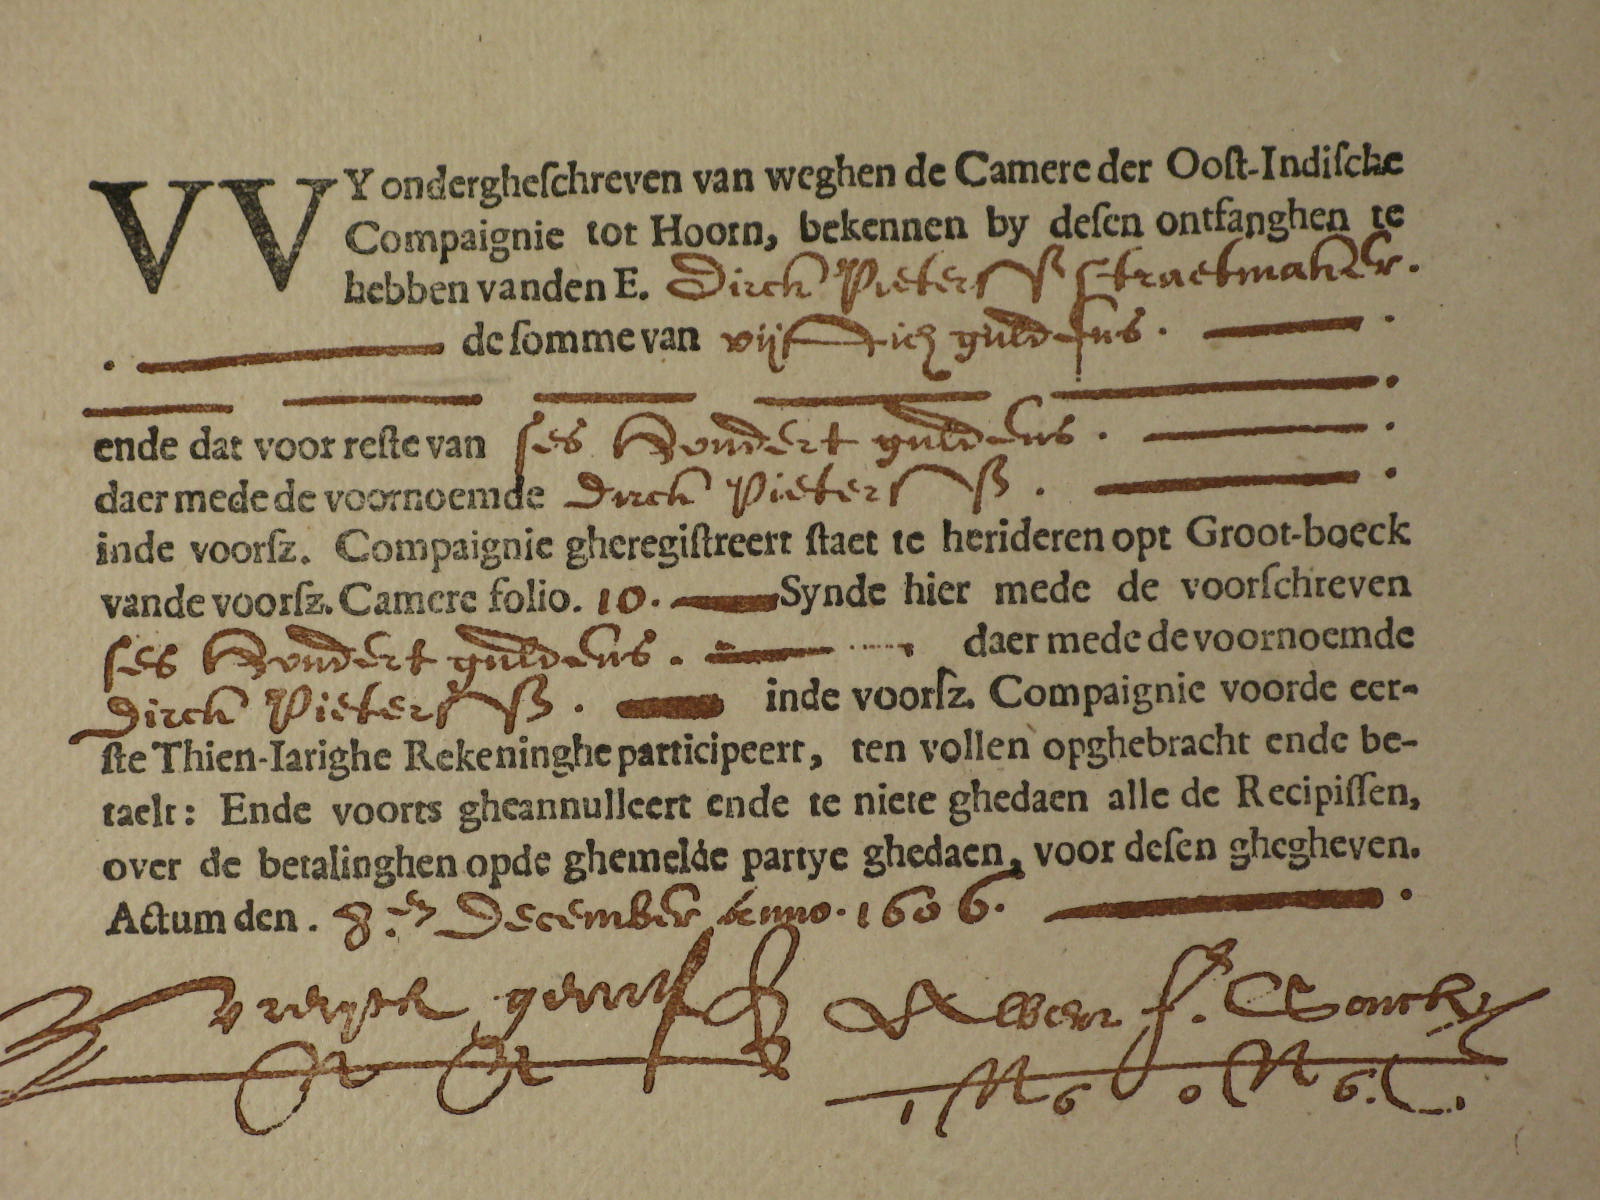 VVY ondergheſchreven van weghen de Camere der Ooſt-Indiſche
Compaignie tot Hoorn, bekennen by deſen ontfanghen te
hebben vanden E. Dirck Pietersſß ſtraetmaker.
de ſomme van vijftich guldens.
ende dat voor reſte van ſes hondert guldens.
daer mede de voornoemde Dirck Pietersſß.
inde voorſz. Compaignie gheregiſtreert ſtaet te herideren opt Groot-boeck
vande voorſz. Camere folio. 10. Synde hier mede de voorſchreven
ſes hondert guldens. daer mede de voornoemde
Dirck Pietersſß. inde voorſz. Compaignie voorde eer-
ſte Thien-Iarighe Rekeninghe participeert, ten vollen opghebracht ende be-
taelt: Ende voorts gheannulleert ende te niete ghedaen alle de Recipiſſen,
over de betalinghen opde ghemelde partye ghedaen, voor deſen ghegheven.
Actum den. 8.en December Anno. 1606.
f. Sonck
1606.